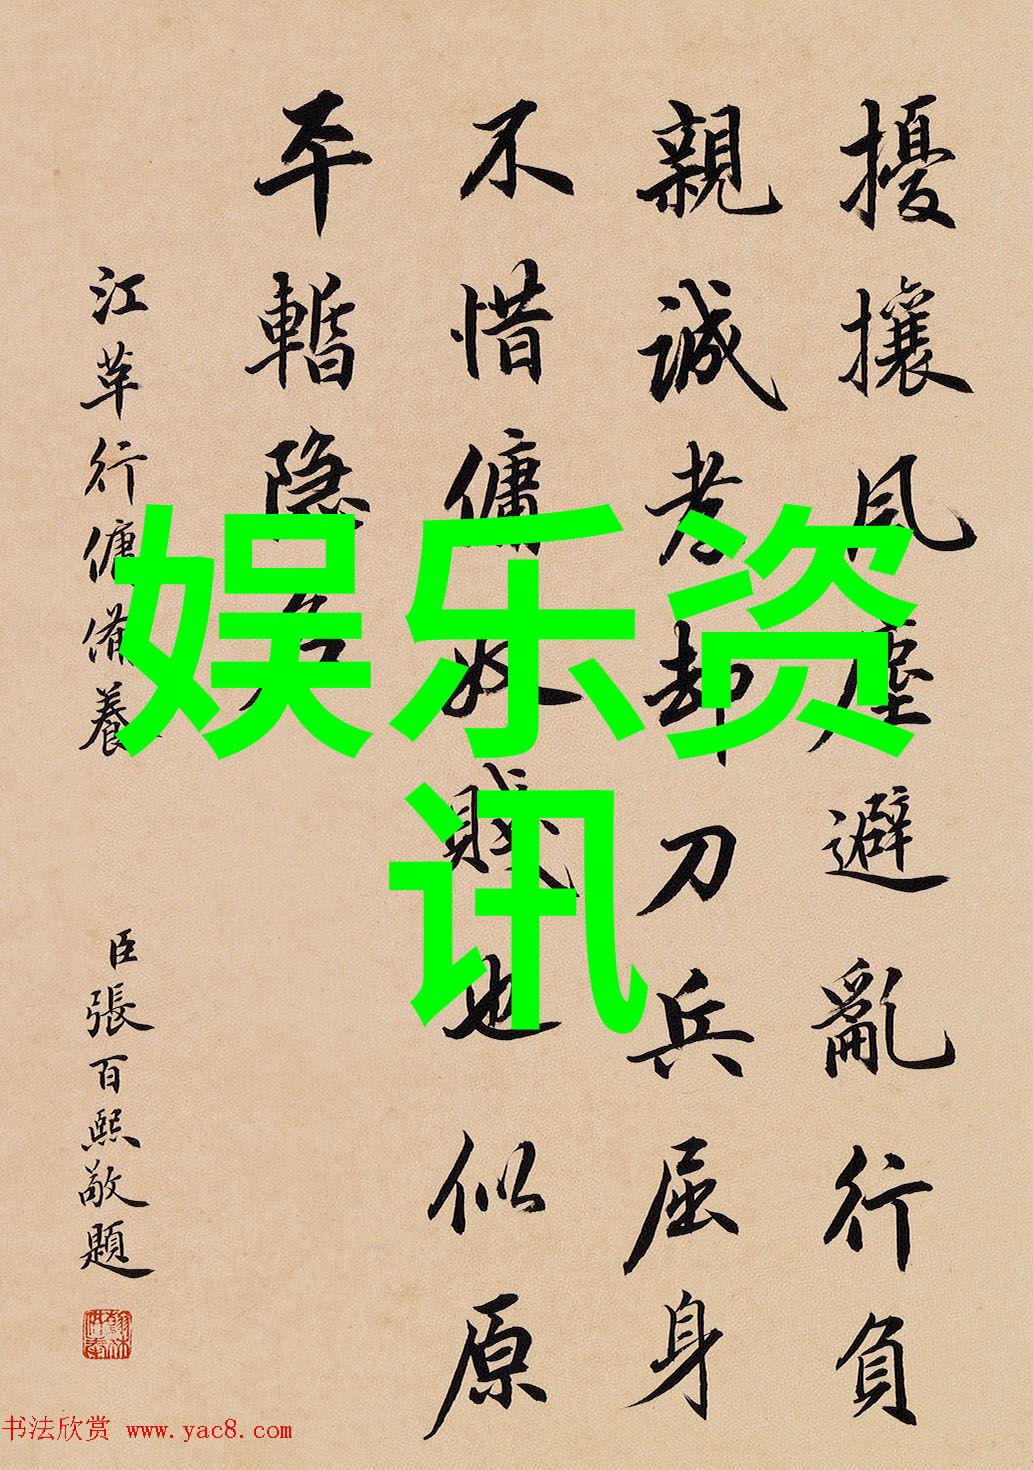 擾攘風塵避亂行負
親誠孝却刀兵屈身
不惜傭奴賤也似原
平暫隱名
江革行傭備養
臣張百熙敬題
娱乐资
讯
书法欣赏 www.yac8.com